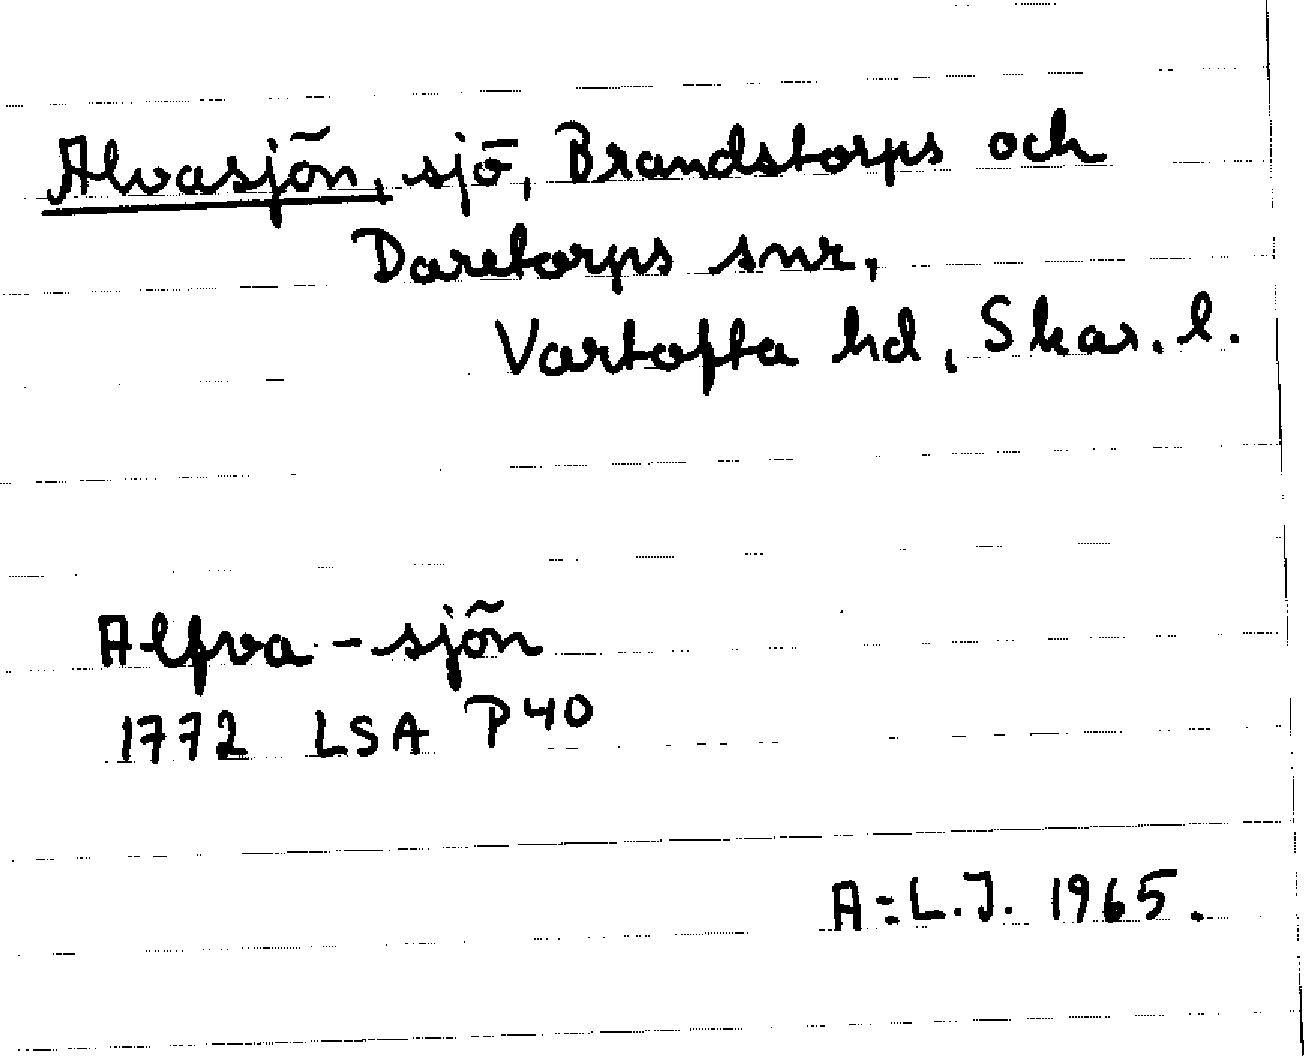 Alvasjön, sjö, Brandstorps och
Daretorps snr,
Vartofta hd, Skar. l.
Alfva-sjön
1772 LSA P40
A=L.J. 1965.